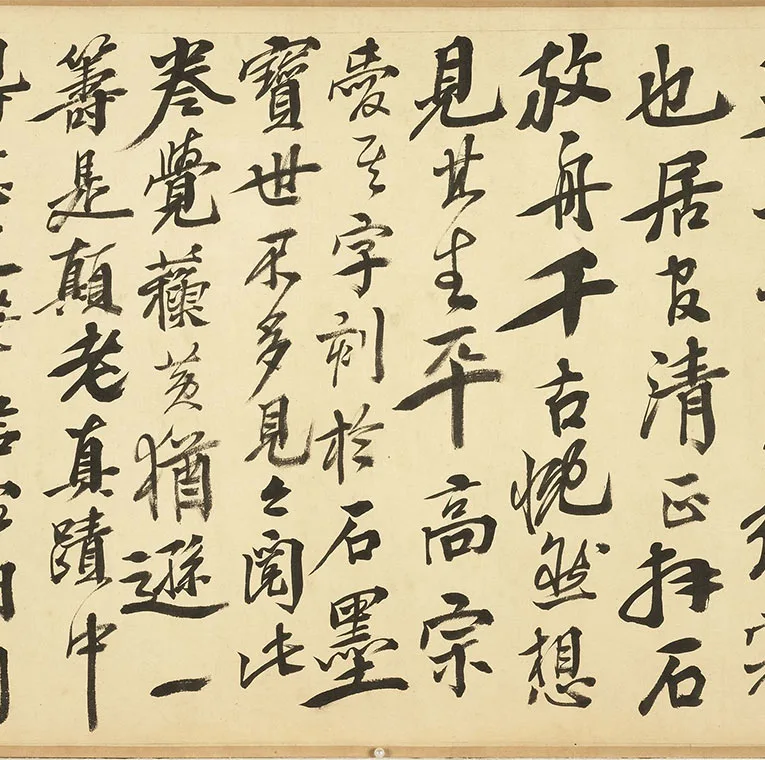 也居官清正拜石
放舟千古恍然想
見其生平高宗
愛其字刻於石墨
寶世不多見今閱此
卷覺蘇黃猶遜一
籌是顛老真蹟中